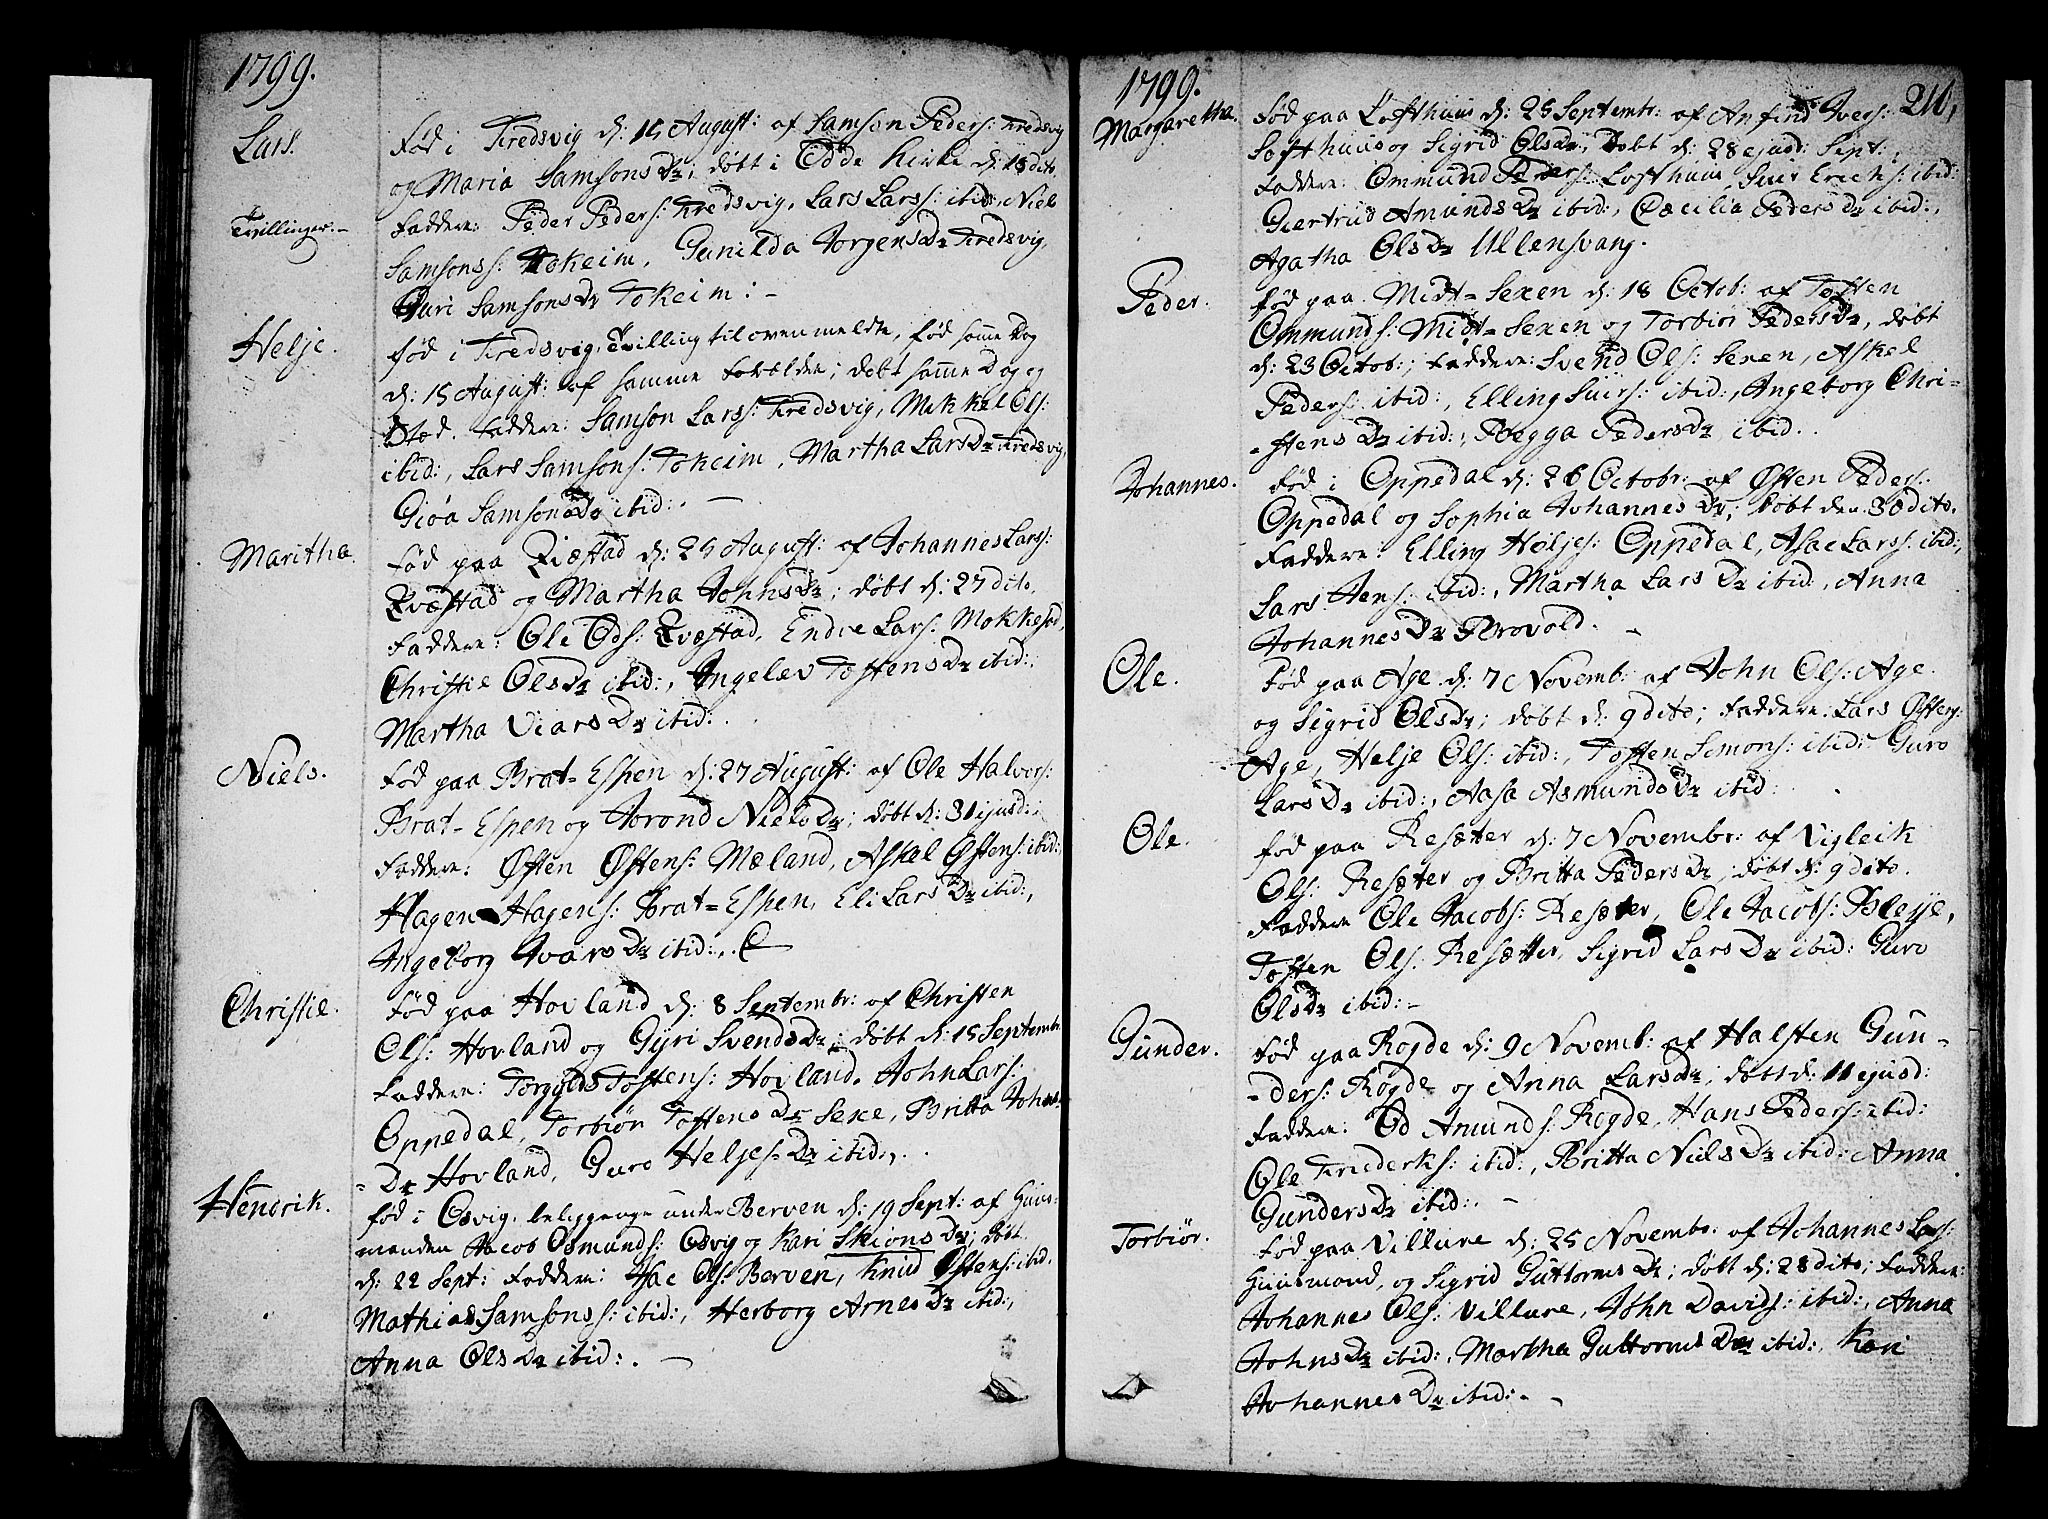 1799.
Lars.
Tvillinger.-
Fød i Fredsvig d: 15 August: af Samson Peders: Fredsvig
og Maria SamsonsDr, døbt i Odde Kirke d: 18 dito.
Faddere: Peder Peders: Fredsvig, Lars Larss: ibid:, Niel
Samsons: Tokeim, Gunilda JorgensDr Fredsvig,
Guri SamsonsDr Tokeim: -
Helje.
Fød i Fredsvig, Tvilling til ovenmeldte, fød samme Dag
d: 15 August: af samme Forældre; døbt samme Dag og
Stæd. Faddere: Samson Larss: Fredsvig, Mikkel Ols:
ibid:, Lars Samsons: Tokeim, Martha LarsDr Fredsvig,
Gioa SamsonsDr ibid:. -
Maritha.
Fød paa Qvæstad d: 25 August: af Johannes Lars:
Qvæstad og Martha JohnsDr; døbt d: 27 dito.
Faddere: Ole Ods: Qvæstad, Endre Lars: Mokkestad,
Christie OlsDr ibid:, Ingelev TostensDr ibid:,
Martha ViarsDr ibid:.
Niels.
Fød paa Brat=Espen d: 27 August: af Ole Halvors:
Brat=Espen og Torond NielsDr; døbt d: 31 ejusd:
Faddere: Østen Østens: Mæland, Askel Østens: ibid:,
Hagen Hagens: Brat=Espen, Eli LarsDr ibid:,
Ingeborg IvarsDr ibid:.
Christie.
Fød paa Hovland d: 8 Septembr: af Christen
Ols: Hovland og Gyri SvendsDr; døbt d: 15 Septembr:
Faddere: Torgyls Tostens: Hovland, John Lars:
Oppedal, Torbiør TostensDr Sexe, Britta Johns=
=Dr Hovland, Guro Heljes=Dr ibid:.
Hendrik.
Fød i Osvig, beliggende under Berven d: 19 Sept: af Huus=
manden Jacob Osmunds: Osvig og Kari SkionsDr; døbt
d: 22 Sept: Faddere: Isac Ols: Berven, Knud Østens: ibid.
Mathias Samsons: ibid:, Herborg ArnesDr ibid:,
Anna OlsDr ibid:. -
1799.
210,
Margaretha.
Fød paa Lofthuus d: 25 Septembr: af Anfind Ivers:
Lofthuus og Sigrid OlsDr, Døbt d: 28 ejusd: Sept:
Faddere: Ommund Peders: Lofthuus, Siur Erichs: ibid:
Giertrud AmundsDr ibid:, Cæcilia PedersDr ibid:,
Agatha OlsDr Ullensvang.
Peder.
Fød paa Midt=Sexen d: 18 Octob: af Tosten
Ommunds: Midt=Sexen og Torbiør PedersDr, døbt
d: 23 Octob:; Faddere: Svend Ols: Sexen, Askel
Peders: ibid:, Elling Siurs: ibid:, Angeborg Chri=
=stensDr ibid:, Rægga PedersDr ibid.
Johannes.
Fød i Oppedal d: 26 Octobr: af Østen Peders:
Oppedal og Sophia JohannesDr; døbt den 30 dito.
Faddere: Elling Heljes: Oppedal, Asac Larss: ibid:,
Lars Jens: ibid:, Martha LarsDr ibid:, Anna
JohannesDr Brovold. -
Ole.
Fød paa Age d: 7 Novemb: af John Ols: Age
og Sigrid OlsDr; døbt d: 9 dito; Faddere: Lars Østens:
Age, Helje Ols: ibid:, Tosten Simons: ibid: Guro
LarsDr ibid:, Aasa AsmundsDr ibid:
Ole.
Fød paa Resæter d: 7 Novembr: af Vigleik
Ols: Resæter og Britta PedersDr, døbt d: 9 dito.
Faddere Ole Jacobs: Resæter, Ole Jacobs: Bleye,
Tosten Ols: Resætter, Sigrid LarsDr ibid: Guro
OlsDr ibid: -
Gunder.
Fød paa Rogde d: 9 Novemb: af Halsten Gun=
=ders: Rogde og Anna LarsDr; døbt d: 11 ejusd:
Faddere: Od Amunds: Rogde, Hans Peders: ibid:
Ole Friederks: ibid:, Britta NielsDr ibid: Anna
GundersDr ibid:. -
Torbiør.
Fød paa Villure d: 25 Novembr: af Johannes Lars:
Huusmand, og Sigrid GuttormsDr; døbt d: 28 dito; Faddere:
Johannes Ols: Villure, John Davids: ibid:, Anna
JohnsDr ibid:, Martha GuttormsDr ibid:, Kari
JohannesDr ibid:. -